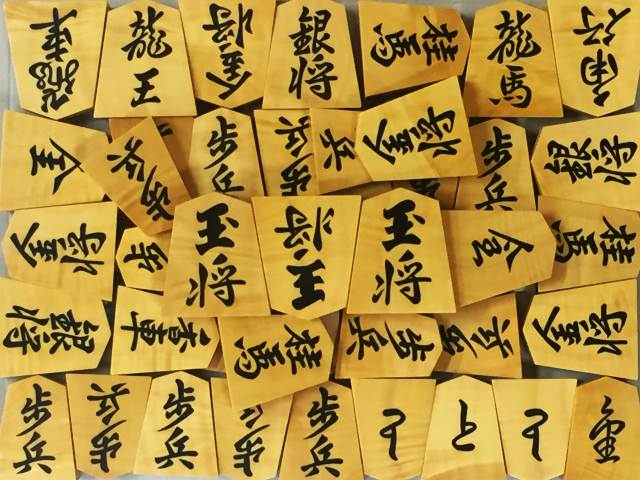 龍王
金将
銀将
桂馬
龍馬
全
歩兵
歩兵
歩兵
兵
金将
歩兵
銀将
金将
歩
玉将
王将
玉将
桂馬
銀将
香車
桂馬
歩兵
歩兵
金将
歩兵
歩兵
歩兵
歩兵
歩兵
と
と
と